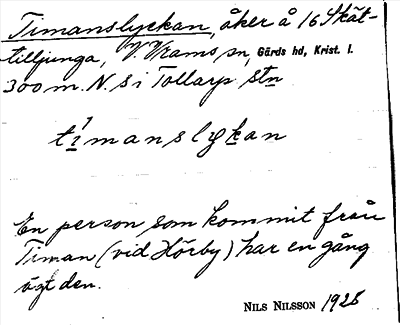 Timanslyckan, åker å 16 Skät-
tilljunga, V. Vrams sn, Gärds hd, Krist. l.
300 m. N. s i Tollarp stn
timanslykan
En person som kommit från
Timan (vid Hörby) har en gång
ägt den.
NILS NILSSON 1925